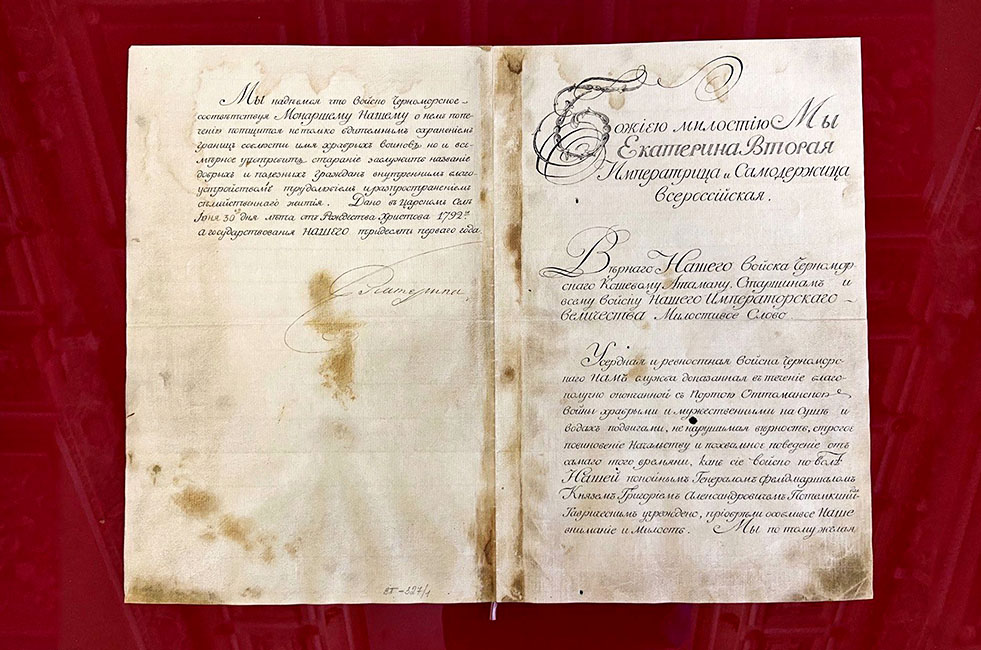 Мы надѣемся что войско Черноморское
соотвѣтствуя Монаршему Нашему о немъ попе-
ченію потщится не только бдительнымъ охраненіемъ
границъ соблюсти имя храбрыхъ воиновъ но и все-
мѣрное употребитъ стараніе заслужить названіе
добрыхъ и полезныхъ гражданъ внутреннимъ благо-
устройствомъ трудолюбіемъ и распространеніемъ
семейственнаго житія. Дано въ Царскомъ Селѣ
Іюня 30го дня лѣта отъ Рождества Христова 1792го
а государствованія НАШЕГО тридесять перваго года
Екатерина
ВГ-327/1
Божіею милостію Мы
Екатерина Вторая
Императрица и Самодержица
Всероссійская.
Вѣрнаго Нашего Войска Черномор-
скаго Кошевому Атаману, Старшинамъ и
всему Войску Нашего Императорскаго
Величества Милостивое Слово
Усердная и ревностная Войска Черноморс-
каго НАМЪ служба доказанная въ теченіе благо-
получно оконченной съ Портою Оттоманскою
войны храбрыми и мужественными на Сушѣ и
водахъ подвигами, не нарушимая вѣрность, строгое
повиновеніе Начальству и похвальное поведеніе отъ
самаго того времяни, какъ сіе войско по волѣ
Нашей покойнымъ Генераломъ фельдмаршаломъ
Княземъ Григоріемъ Александровичемъ Потемкинымъ
Таврическимъ учреждено, пріобрѣли особливое Наше
вниманіе и Милость. Мы по тому желая